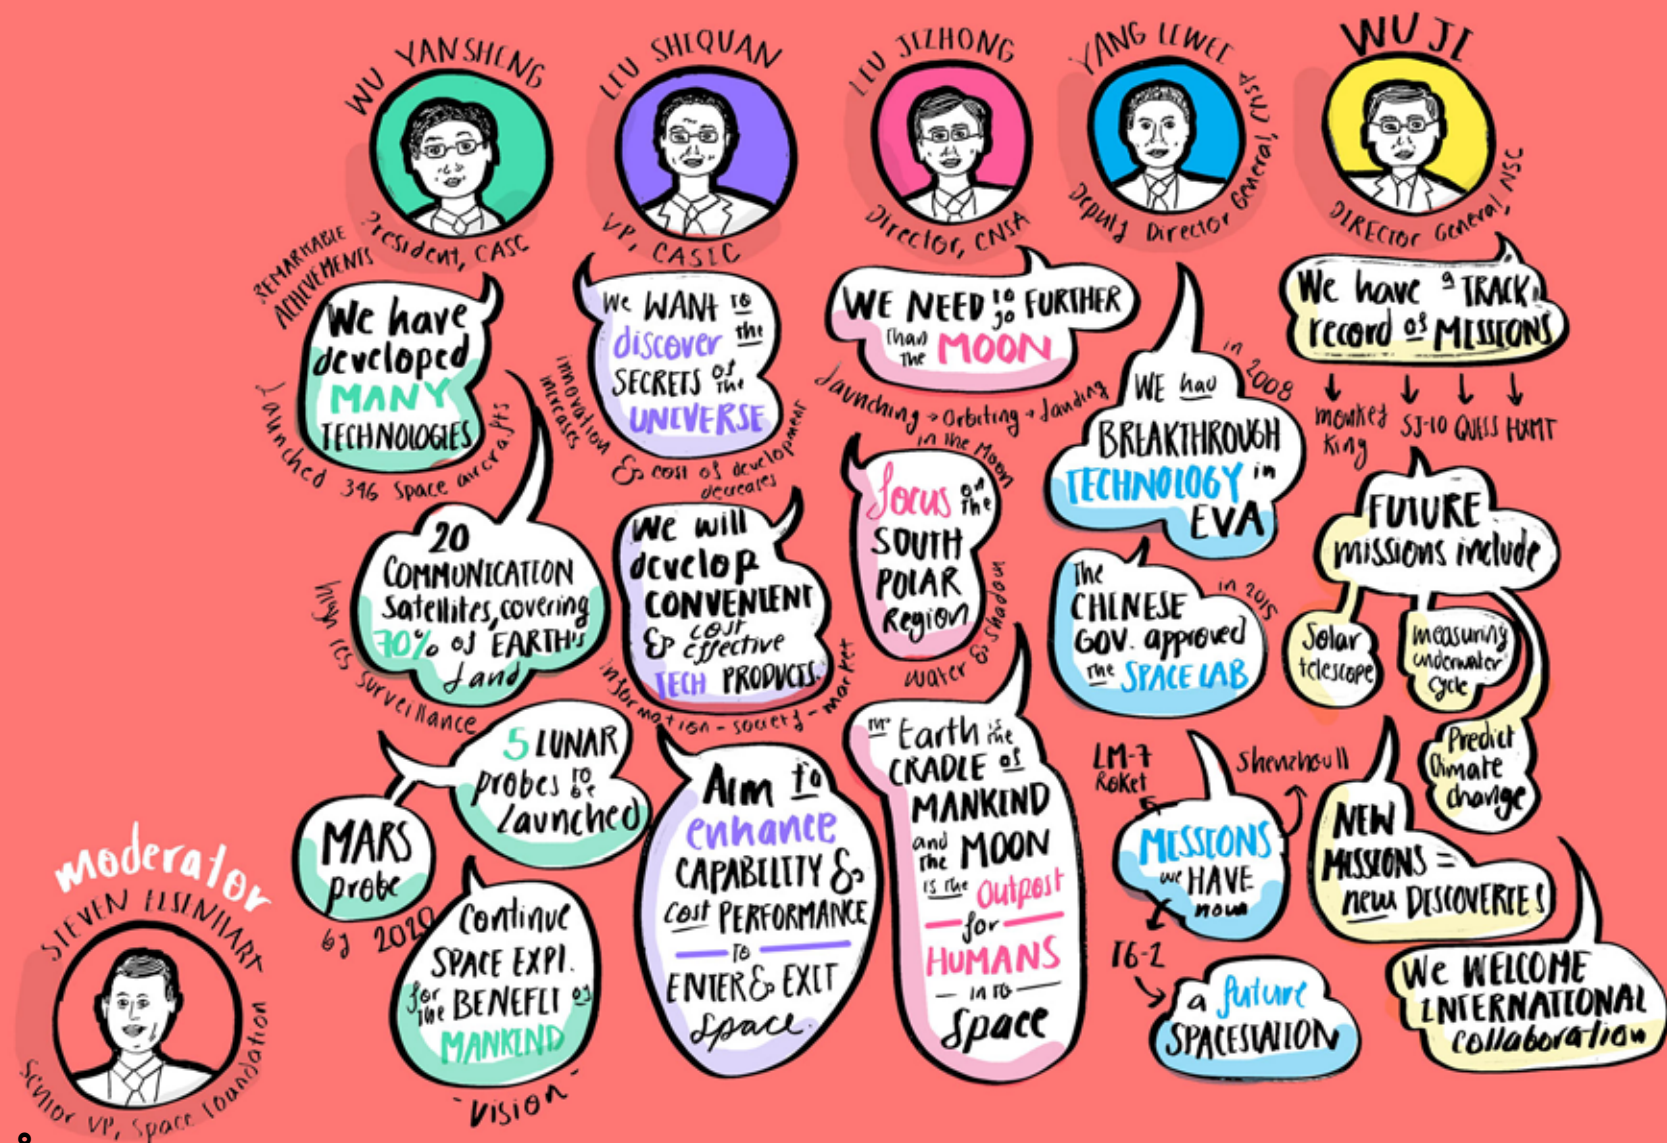 WU YANSHENG
President, CASC
REMARKABLE
ACHIEVEMENTS
We have
developed
MANY
TECHNOLOGIES
Launched 346 space aircrafts
20
COMMUNICATION
Satellites, covering
70% of EARTH'S
Land
high res surveillance
5 LUNAR
probes to be
Launched
MARS
probe
by 2020
Continue
SPACE EXPL.
for the BENEFIT of
MANKIND
-vision-
LIU SHIQUAN
VP, CASIC
We WANT to
discover the
SECRETS of the
UNIVERSE
innovation
increases
& cost of development
decreases
We will
develop
CONVENIENT
& cost
effective
TECH PRODUCTS.
information - society - market
Aim to
enhance
CAPABILITY &
cost PERFORMANCE
TO
ENTER & EXIT
Space.
LIU JIZHONG
Director, CNSA
WE NEED to go FURTHER
than the MOON
Launching → Orbiting → Landing
in the Moon
focus on the
SOUTH
POLAR
Region
water & shadow
The Earth is the
CRADLE of
MANKIND
and the MOON
is the Outpost
for
HUMANS
INTO
Space
YANG LIWEI
Deputy Director General, CMSA
WE had
BREAKTHROUGH
TECHNOLOGY in
EVA
in 2008
The
CHINESE
GOV. approved
the SPACE LAB
in 2015
LM-7
Roket
Shenzhou 11
MISSIONS
we HAVE
now
TG-2
a future
SPACESTATION
WU JI
DIRECTOR General, NSC
We have a TRACK
record of MISSIONS
monkey
King
SJ-10
QUESS
HXMT
FUTURE
missions include
Solar
telescope
measuring
underwater
cycle
Predict
Climate
change
NEW
MISSIONS =
new DISCOVERIES
We WELCOME
INTERNATIONAL
collaboration
moderator
STEVEN EISENHART
Senior VP, Space Foundation